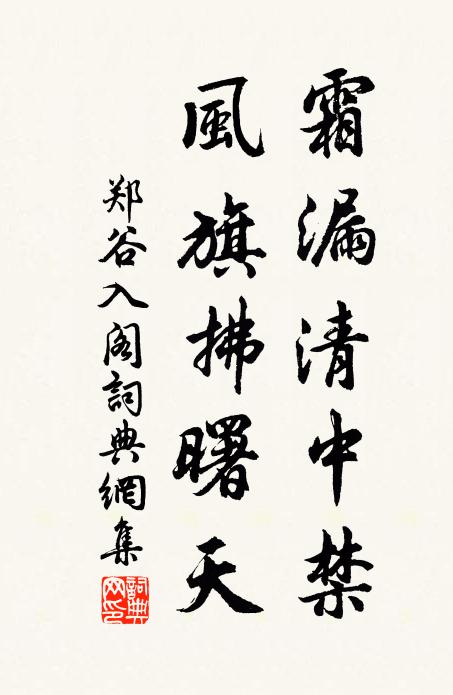 霜漏清中禁
風旗拂曙天
郑谷入阁詞典網集
詞典網印